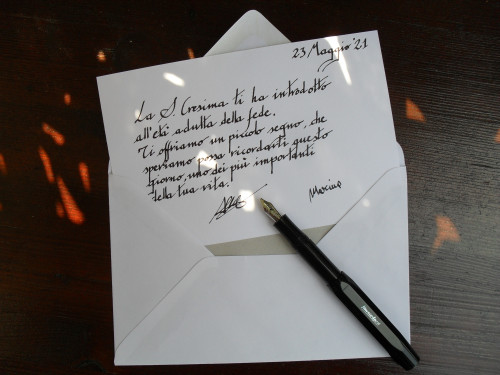 23 Maggio '21
La S. Cresima ti ha introdotto
all'età adulta della fede.
Ti offriamo un piccolo segno, che
speriamo possa ricordarti questo
giorno, uno dei più importanti
della tua vita.